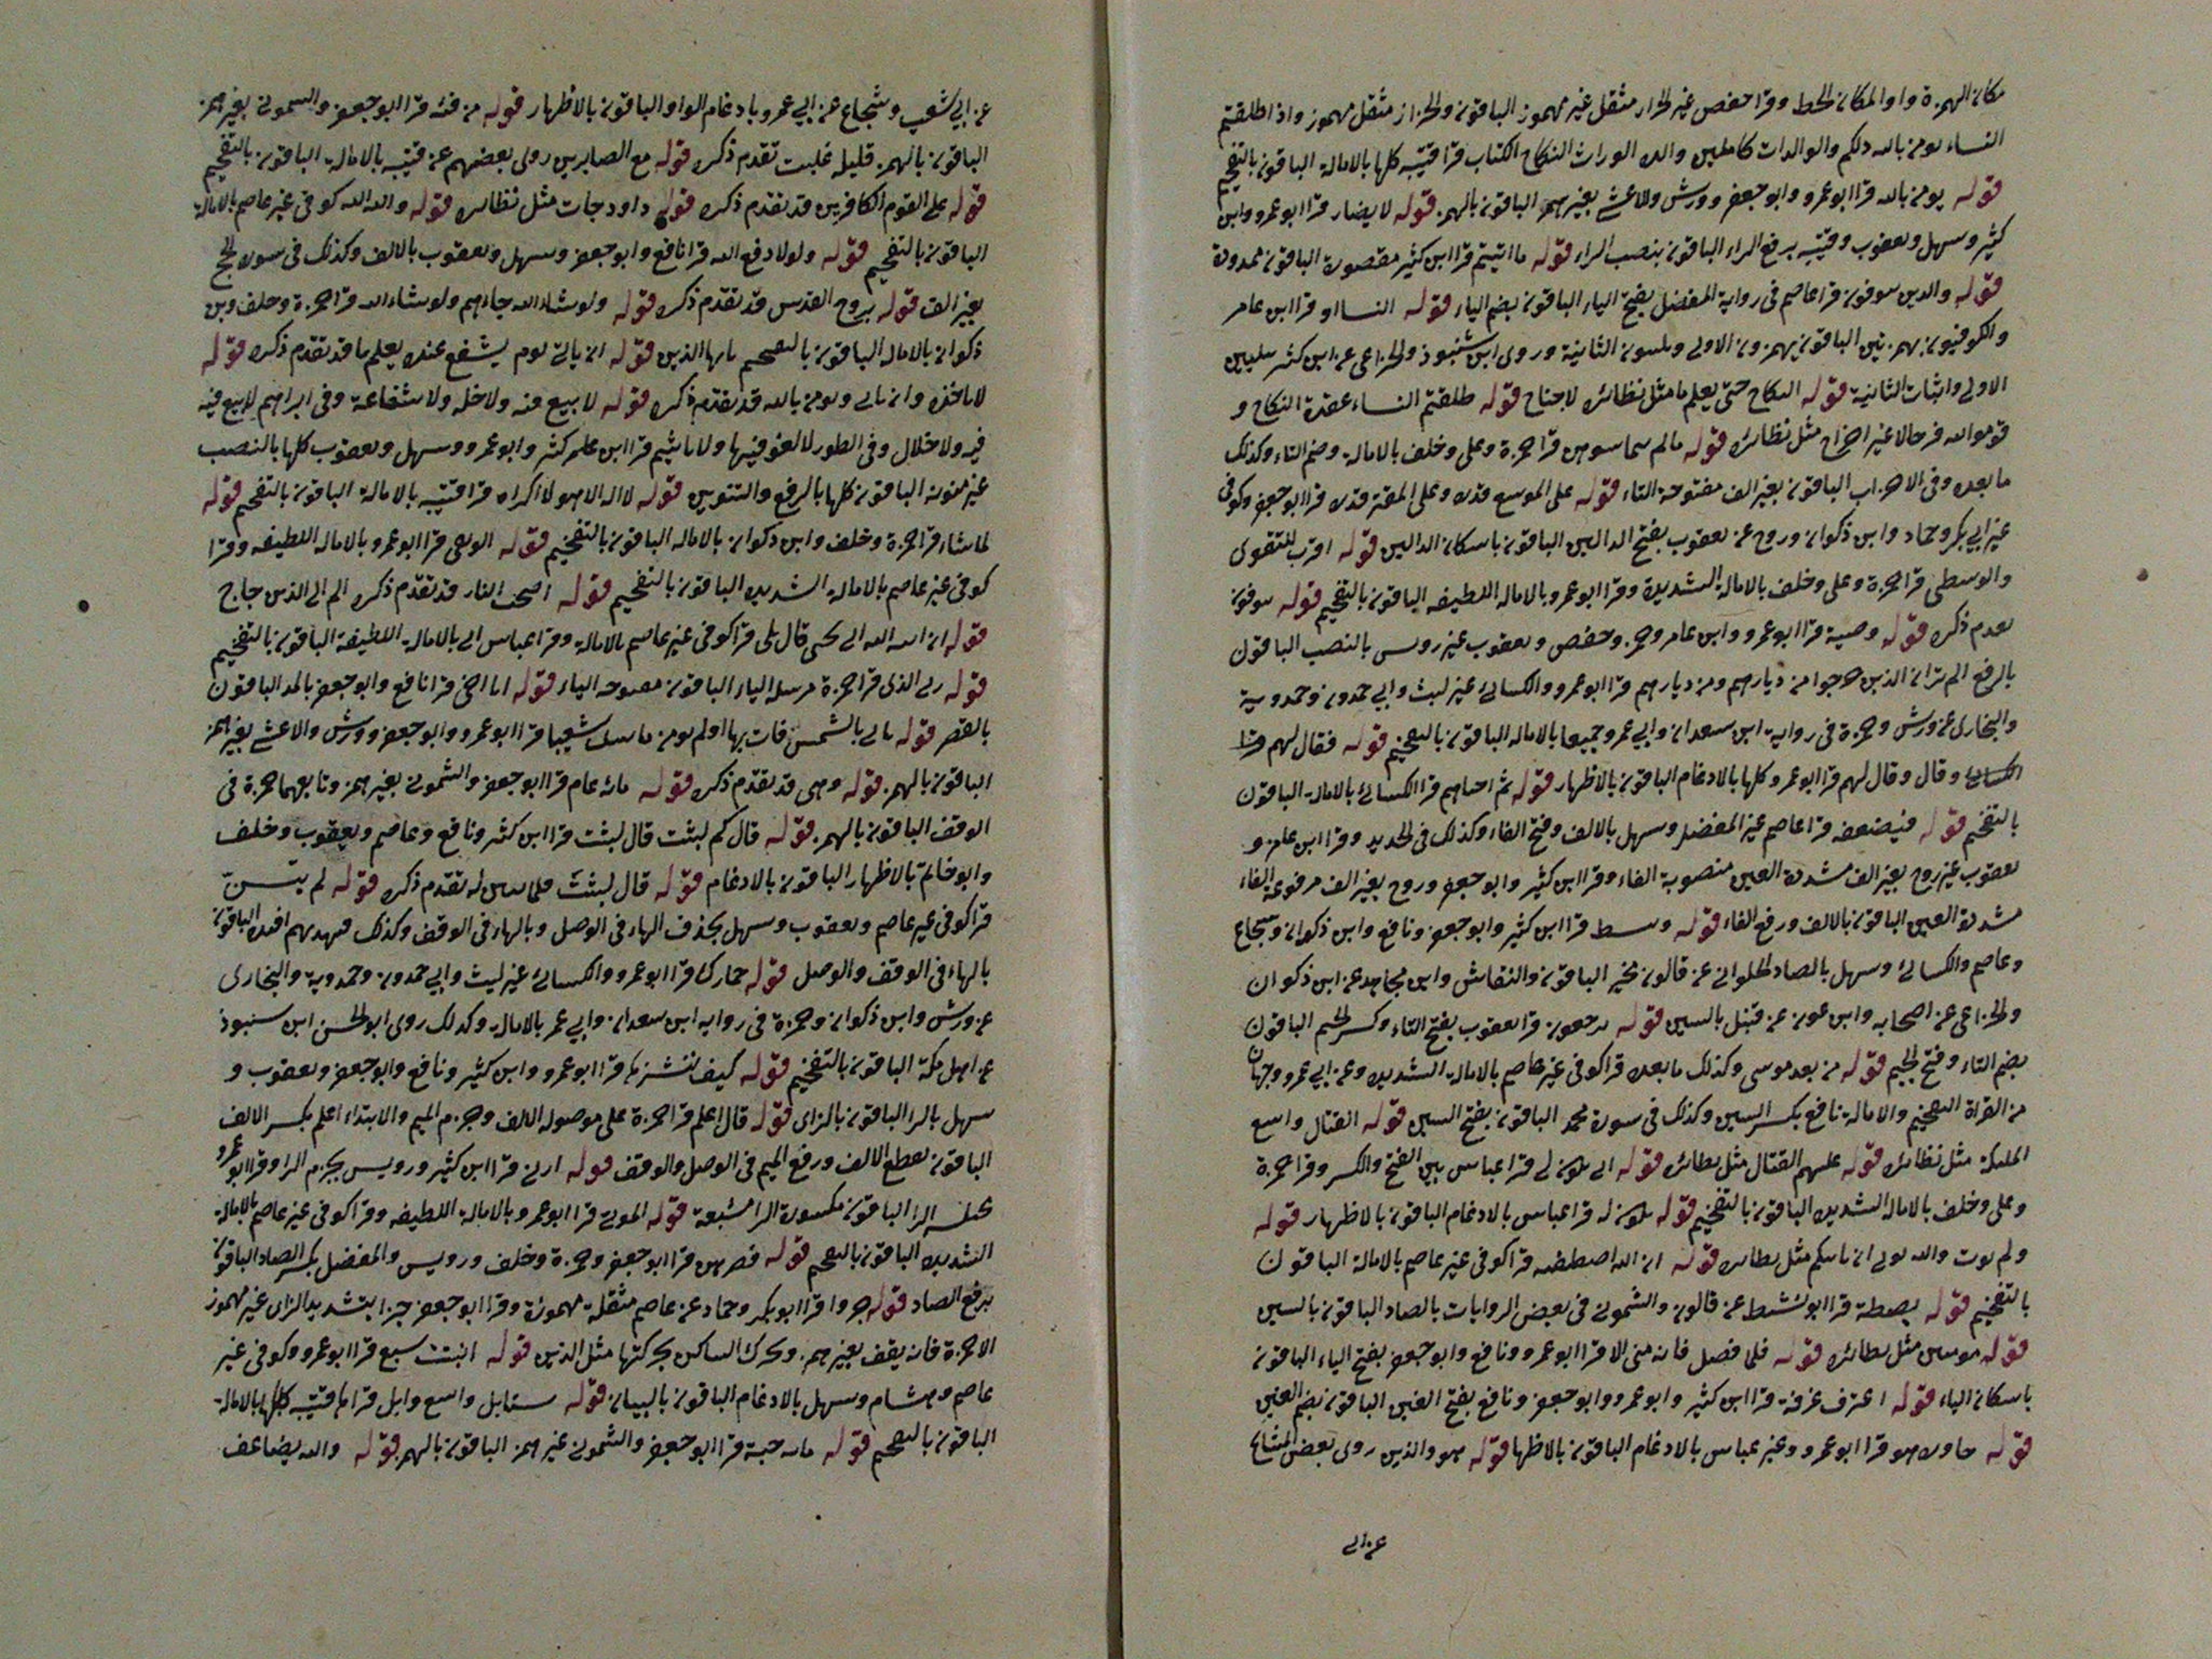 مكان الهمزة واوا لمكان الخط وقرا حفص غير الخراز مثقل غير مهموز الباقون والخراز مثقل مهموز واذا طلقتم
النساء يومن بالله ذلكم والوالدات كاملين والده الوراث النكاح الكتاب قرا قتيبه كلها بالامالة الباقون بالتفخيم
قوله يومن بالله قرا ابو عمرو وابو جعفر وورش والاعشى بغير همز الباقون بالهمز قوله لا يضار قرا ابو عمرو وابن
كثير وسهل ويعقوب وقتيبه برفع الراء الباقون بنصب الراء قوله ما اتيتم قرا ابن كثير مقصورة الباقون ممدودة
قوله والذين يتوفون قرا عاصم في رواية المفضل بفتح الياء الباقون بضم الياء قوله النسا او قرا ابن عامر
والكوفيون بهمزتين الباقون بهمزون الاولى ويلينون الثانية وروى ابن شنبوذ والخزاعى عن ابن كثير تليين
الاولى واثبات الثانية قوله النكاح حتى يعلم ما مثل نظائره لاجناح قوله طلقتم النساء عقدة النكاح و
قوموا لله فرجالا غير اخراج مثل نظائره قوله مالم تماسوهن قرا حمزة وعلى وخلف بالامالة وضم التاء وكذلك
ما بعده وفى الاحزاب الباقون بغير الف مفتوحة التاء قوله على الموسع قدره وعلى المقتر قدره قرا ابو جعفر وكوفى
غير ابي بكر وحماد وابن ذكوان وروح عن يعقوب بفتح الدالين الباقون باسكان الدالين قوله اقرب للتقوى
والوسطى قرا حمزة وعلى وخلف بالامالة الشديدة وقرا ابو عمرو بالامالة اللطيفه الباقون بالتفخيم قوله يتوفون
تقدم ذكره قوله وصية قرا ابو عمرو وابن عامر وحمزة وحفص ويعقوب غير رويس بالنصب الباقون
بالرفع الم تر الى الذين خرجوا من ديارهم ومن ديارهم قرا ابو عمرو والكسائى غير ليث وابي حمدون وحمدوية
والبخارى عن ورش وحمزة في رواية ابن سعدان وابي عمرو جميعا بالامالة الباقون بالتفخيم قوله فقال لهم قرا
الكسائى وقال وقال لهم قرا ابو عمرو وكلها بالادغام الباقون بالاظهار قوله ثم احياهم قرا الكسائى بالامالة الباقون
بالتفخيم قوله فيضعفه قرا عاصم غير المفضل وسهل بالالف وفتح الفاء وكذلك فى الحديد وقرا ابن عامر و
يعقوب غير روح بغير الف مشددة العين منصوبة الفاء وقرا ابن كثير وابو جعفر وروح بغير الف مرفوعة الفاء
مشددة العين الباقون بالالف ورفع الفاء قوله وبسط قرا ابن كثير وابو جعفر ونافع وابن ذكوان وشجاع
وعاصم والكسائى وسهل بالصاد الحلوانى عن قالون مخير الباقون والنقاش وابن مجاهد عن ابن ذكوان
والخزاعى عن اصحابه وابن عون عن قنبل بالسين قوله ترجعون قرا يعقوب بفتح التاء وكسر الجيم الباقون
بضم التاء وفتح الجيم قوله من بعد موسى وكذلك ما بعده قرا كوفى غير عاصم بالامالة الشديده وعن ابي عمرو وجهان
من القراة التفخيم والامالة نافع بكسر السين وكذلك فى سورة محمد الباقون بفتح السين قوله القتال واسع
الملئكة مثل نظائره قوله عليهم القتال مثل نظائره قوله انى يكون لى قرا عباس بين الفتح والكسر وقرا حمزة
وعلى وخلف بالامالة الشديده الباقون بالتفخيم قوله يكون له قرا عباس بالادغام الباقون بالاظهار قوله
ولم يوت والله يوتى ان ياتيكم مثل نظائره قوله ان الله اصطفيه قرا كوفى غير عاصم بالامالة الباقون
بالتفخيم قوله بصطة قرا ابو نشيط عن قالون والشمونى فى بعض الروايات بالصاد الباقون بالسين
قوله مومنين مثل نظائره قوله فلما فصل فانه منى الا قرا ابو عمرو ونافع وابو جعفر بفتح الياء الباقون
باسكان الياء قوله اغترف غرفة قرا ابن كثير وابو عمرو وابو جعفر ونافع بفتح الغين الباقون بضم الغين
قوله جاوزه هو قرا ابو عمرو وغير عباس بالادغام الباقون بالاظها قوله هو والذين روى بعض المشايخ
عن ابى
عن ابي شعيب وشجاع عن ابي عمرو بادغام الواو الباقون بالاظهار قوله من فئة قرا ابو جعفر والشمونى بغير همز
الباقون بالهمز قليلة غلبت تقدم ذكره قوله مع الصابرين روى بعضهم عن قتيبه بالامالة الباقون بالتفخيم
قوله على القوم الكافرين قد تقدم ذكره قوله داود جات مثل نظائره قوله واتاه الله كوفى غير عاصم بالامالة
الباقون بالتفخيم قوله ولولا دفع الله قرا نافع وابو جعفر وسهل ويعقوب بالالف وكذلك فى سورة الحج
بغير الف قوله بروح القدس قد تقدم ذكره قوله ولو شاء الله جاءهم ولو شاء الله قرا حمزة وخلف وبن
ذكوان بالامالة الباقون بالتفخيم يا ايها الذين قوله ان ياتى يوم يشفع عنده يعلم ما قد تقدم ذكره قوله
لا تاخذه وان ياتى ويومن بالله قد تقدم ذكره قوله لا بيع فيه ولا خلة ولا شفاعة وفى ابراهيم لا بيع فيه
فيه ولا خلال وفى الطور لا لغو فيها ولا تاثيم قرا ابن كثير وابو عمرو وسهل ويعقوب كلها بالنصب
غير منونة الباقون كلها بالرفع والتنوين قوله لا اله الا هو لا اكراه قرا قتيبه بالامالة الباقون بالتفخيم قوله
لما شاء قرا حمزة وخلف وابن ذكوان بالامالة الباقون بالتفخيم قوله الوثقى قرا ابو عمرو بالامالة اللطيفه وقرا
كوفى غير عاصم بالامالة الشديده الباقون بالتفخيم قوله اصحب النار قد تقدم ذكره الم الى الذى حاج
قوله ان اتيه الله الى يحيى قال بلى قرا كوفى غير عاصم بالامالة وقرا عباس انى بالامالة اللطيفة الباقون بالتفخيم
قوله ربى الذى قرا حمزة مرسلة الياء الباقون مفتوحه الياء قوله انا احى قرا نافع وابو جعفر بالمد الباقون
بالقصر قوله ياتى بالشمس فات بها اولم يومن ياتينك سعيا قرا ابو عمرو وابو جعفر وورش والاعشى بغير همز
الباقون بالهمز قوله وهى قد تقدم ذكره قوله مائة عام قرا ابو جعفر والشمونى بغير همز وتابعهما حمزة فى
الوقف الباقون بالهمز قوله قال كم لبثت قال لبثت قرا ابن كثير ونافع وعاصم ويعقوب وخلف
وابو حاتم بالاظهار الباقون بالادغام قوله قال لبثت فلما تبين له تقدم ذكره قوله لم يتسنه
قرا كوفى غير عاصم ويعقوب وسهل بحذف الهاء فى الوصل وبالهاء فى الوقف وكذلك فبهديهم اقتده الباقون
بالهاء فى الوقف والوصل قوله حمارك قرا ابو عمرو والكسائى غير ليث وابي حمدون وحمدوية والبخارى
عن ورش وابن ذكوان وحمزة فى رواية ابن سعدان وابي عمر بالامالة وكذلك روى ابو الحسن ابن شنبوذ
عن اهل مكة الباقون بالتفخيم قوله كيف ننشزها قرا ابو عمرو وابن كثير ونافع وابو جعفر ويعقوب و
سهل بالرا الباقون بالزاى قوله قال اعلم قرا حمزة على موصولة الالف وجزم الميم والابتداء اعلم بكسر الالف
الباقون بقطع الالف ورفع الميم فى الوصل والوقف قوله ارنى قرا ابن كثير ورويس بجزم الرا وقرا ابو عمرو
الرا الباقون مكسورة الرا مشبعة قوله الموتى قرا ابو عمرو بالامالة اللطيفه وقرا كوفى غير عاصم بالامالة
الشديده الباقون بالتفخيم قوله فصرهن قرا ابو جعفر وحمزة وخلف ورويس والمفضل بكسر الصاد الباقون
برفع الصاد قوله جزوا قرا ابو بكر وحماد عن عاصم مثقلة مهموزة وقرا ابو جعفر جزا بتشديد الزاى غير مهموز
الا حمزة فانه يقف بغير همز ويحرك الساكن بحركتها مثل الذين قوله انبتت سبع قرا ابو عمرو وكوفى غير
عاصم وهشام وسهل بالادغام الباقون بالبيان قوله سنابل واسع وابل قراها قتيبه كلها بالامالة
الباقون بالتفخيم قوله مائة حبة قرا ابو جعفر والشمونى غير همز الباقون بالهمز قوله والله يضاعف